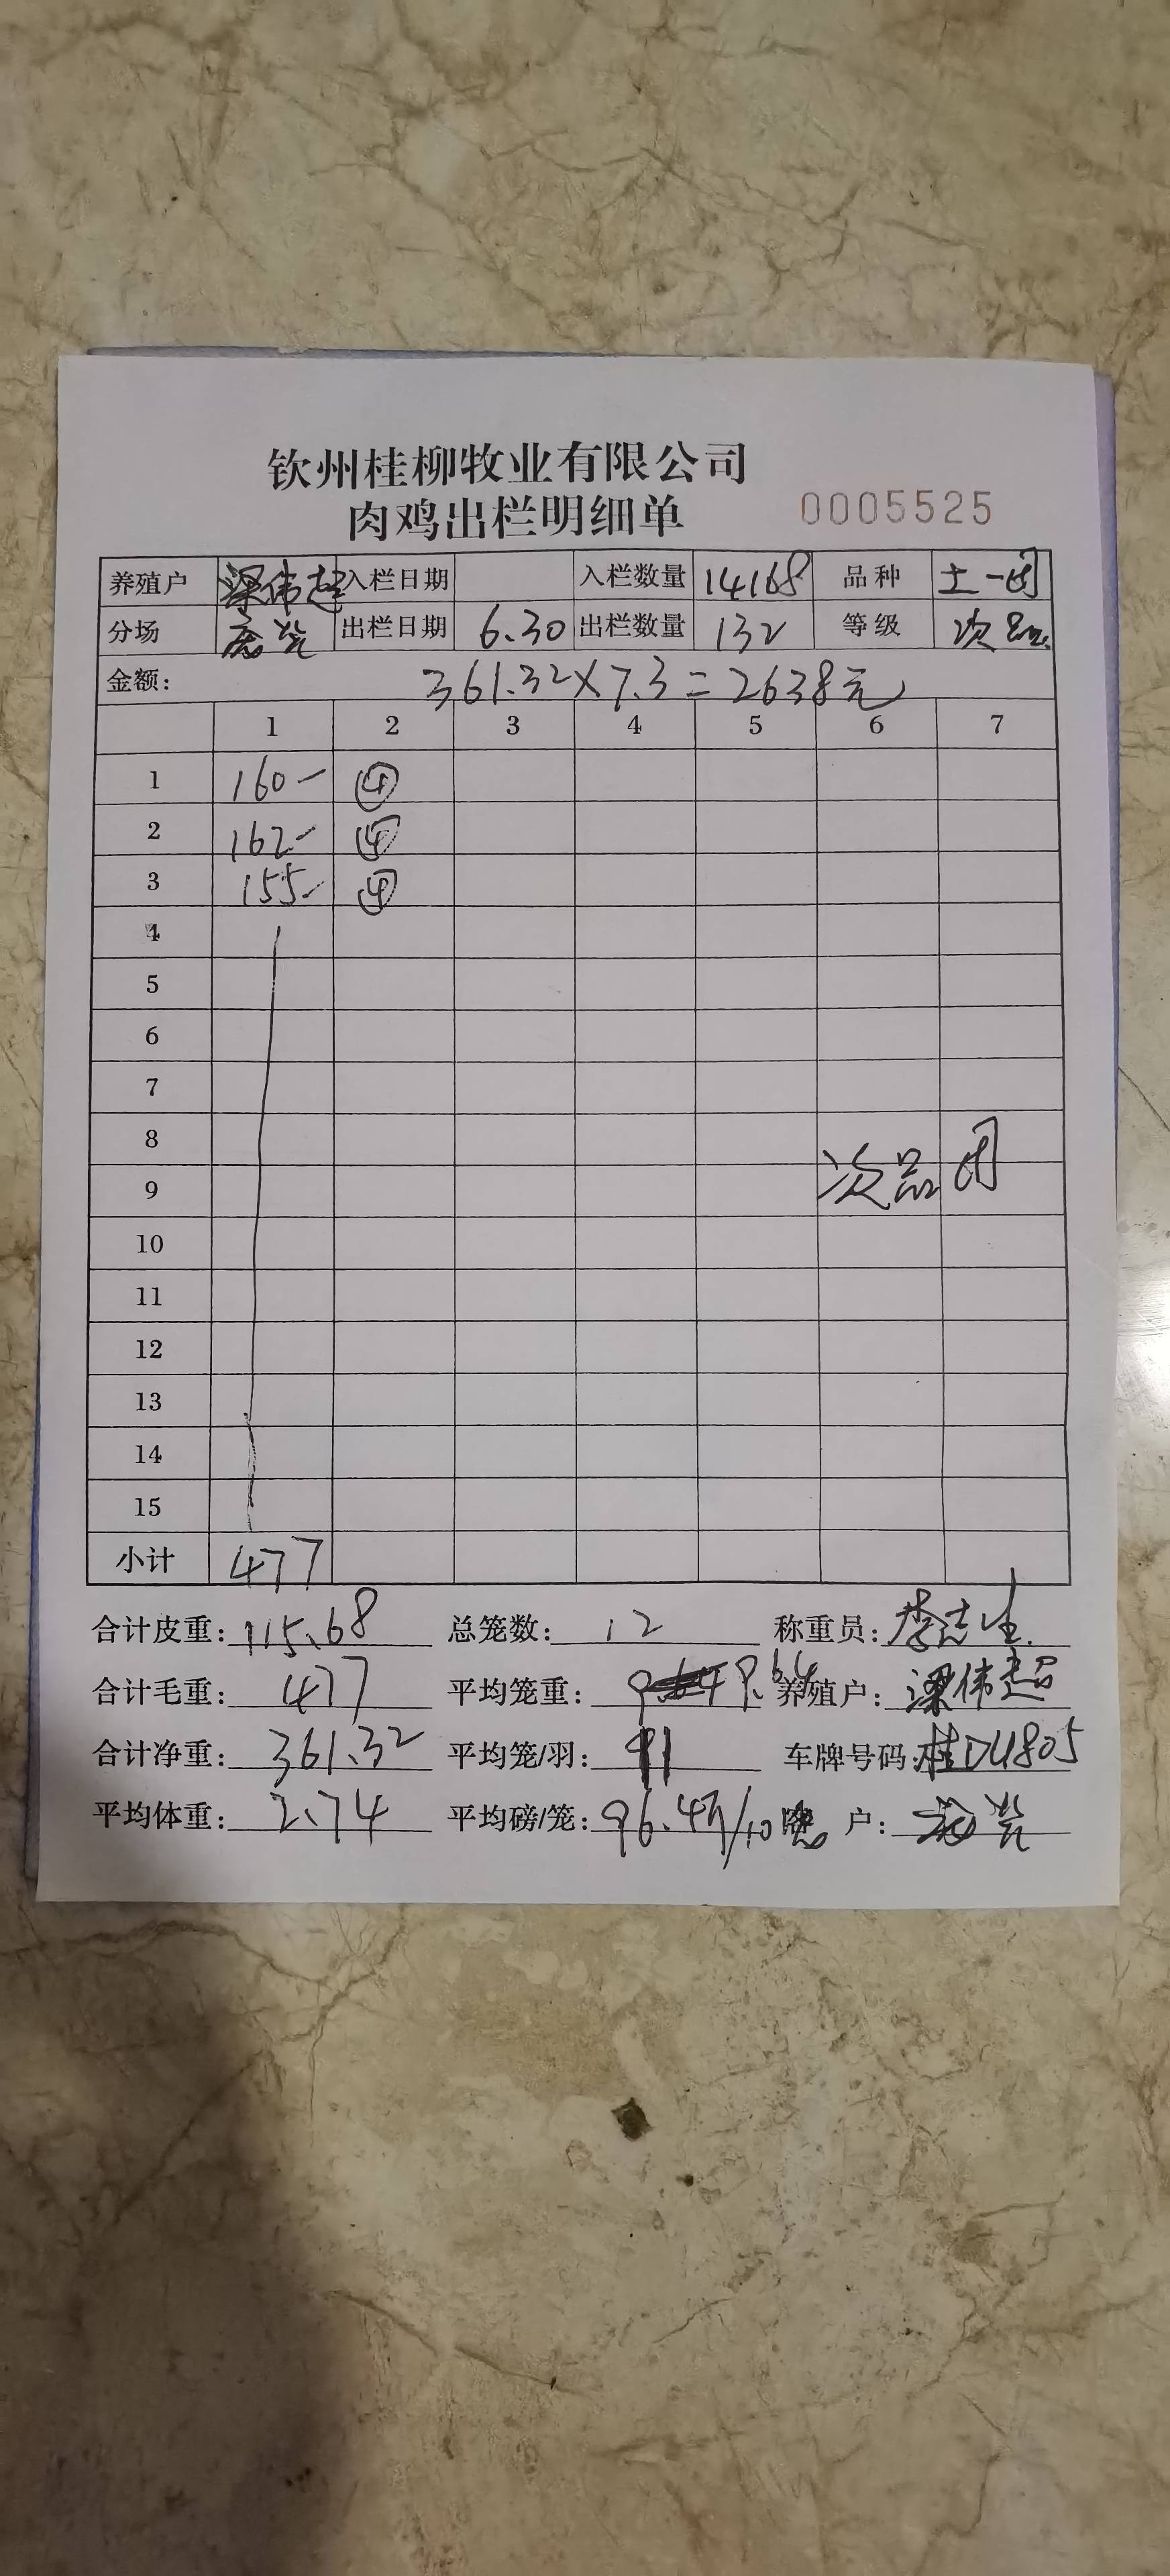 钦州桂柳牧业有限公司
肉鸡出栏明细单 0005525
养殖户 梁伟超 入栏日期 入栏数量 14168 品种 土一
分场 出栏日期 6.30 出栏数量 132 等级 次品
金额: 361.32×7.3=2638元
1 2 3 4 5 6 7
1 160 ④
2 162 ④
3 155 ④
4
5
6
7
8
9 次品
10
11
12
13
14
15
小计 477
合计皮重: 115.68 总笼数: 12 称重员: 李志生
合计毛重: 477 平均笼重: 9.64 养殖户: 梁伟超
合计净重: 361.32 平均笼/羽: 11 车牌号码: 桂DU1805
平均体重: 2.74 平均磅/笼: 96.4斤/10 户: